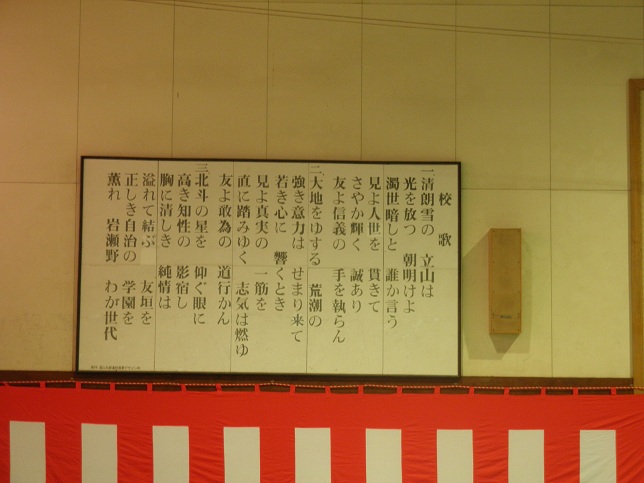 校歌
一清朗雪の 立山は
光を放つ 朝明けよ
濁世暗しと 誰か言う
見よ人世を 貫きて
さやか輝く 誠あり
友よ信義の 手を執らん
二大地をゆする 荒潮の
強き意力は せまり来て
若き心に 響くとき
見よ真実の 一筋を
直に踏みゆく 志気は燃ゆ
友よ敢為の 道行かん
三北斗の星を 仰ぐ眼に
高き知性の 影宿し
胸に清しき 純情は
溢れて結ぶ 友垣を
正しき自治の 学園を
薫れ 岩瀬野 わが世代